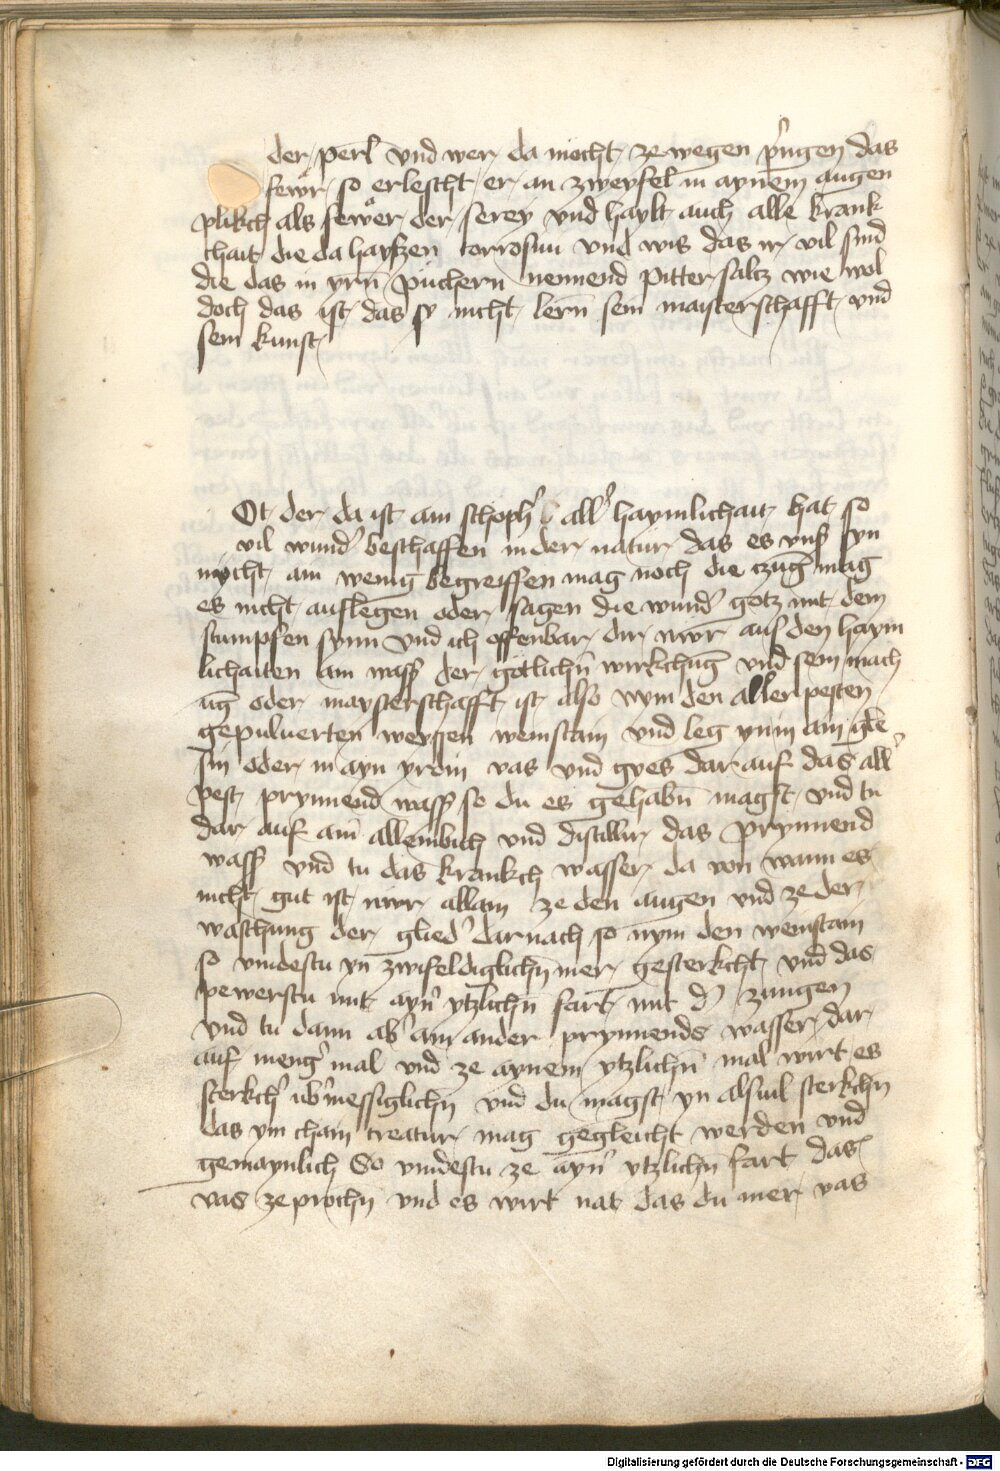 der perl vnd wer da mocht ze wegen pringen das
fewr so erlescht er an zweyfel in aynem augen
plikch als fewer der serey vnd haylt auch alle krank
chait die da hayssen corrosiui vnd wis das ir vil sind
die das in yrn puchern nennend pitter saltz wie wol
doch das ist das sy nicht lern sein maisterschafft vnd
sein kunst
Ot der da ist ain schoph' all' haymlichait hat so
vil wund' beschaffen in der natur das es vns' syn
nycht ain wenig begreiffen mag noch die czug mag
es nicht auslegen oder sagen die wund' gotz mit dem
stumpfen synn vnd ich offenbar dir nwr aus den haym
lichaiten ain wass' der gotlichn wirkchug vnd sein mach
ug oder maysterschafft ist also nym den aller pesten
gepuluerten weyssen weinstain vnd leg ynn in ain gle
sin oder in ayn yrdin vas vnd gyes dar auf das all'
pest prynnend wass' so du es gehabn magst vnd tu
dar auf ain allembich vnd distillir das prynnend
wass' vnd tu das krankch wasser da von wann es
nicht gut ist nwr allain ze den augen vnd ze der
waschung der glied' darnach so nym den weinstain
so vindestu yn zwifeldiglichn mer gesterkcht vnd das
pewerstu mit ayn' ytzlichn fart mit d' zungen
vnd tu dann ab' ain ander prynnends wasser dar
auf meng' mal vnd ze aynem ytzlichn mal wirt es
sterkch' vb'messiglichn vnd du magst yn alsuil sterkchn
das ym chain creatur mag gegleicht werden vnd
gemaynlich So vindestu ze ayn' ytzlichn fart das
vas ze prochn vnd es wirt nat das du mer vas
Digitalisierung gefördert durch die Deutsche Forschungsgemeinschaft - DFG